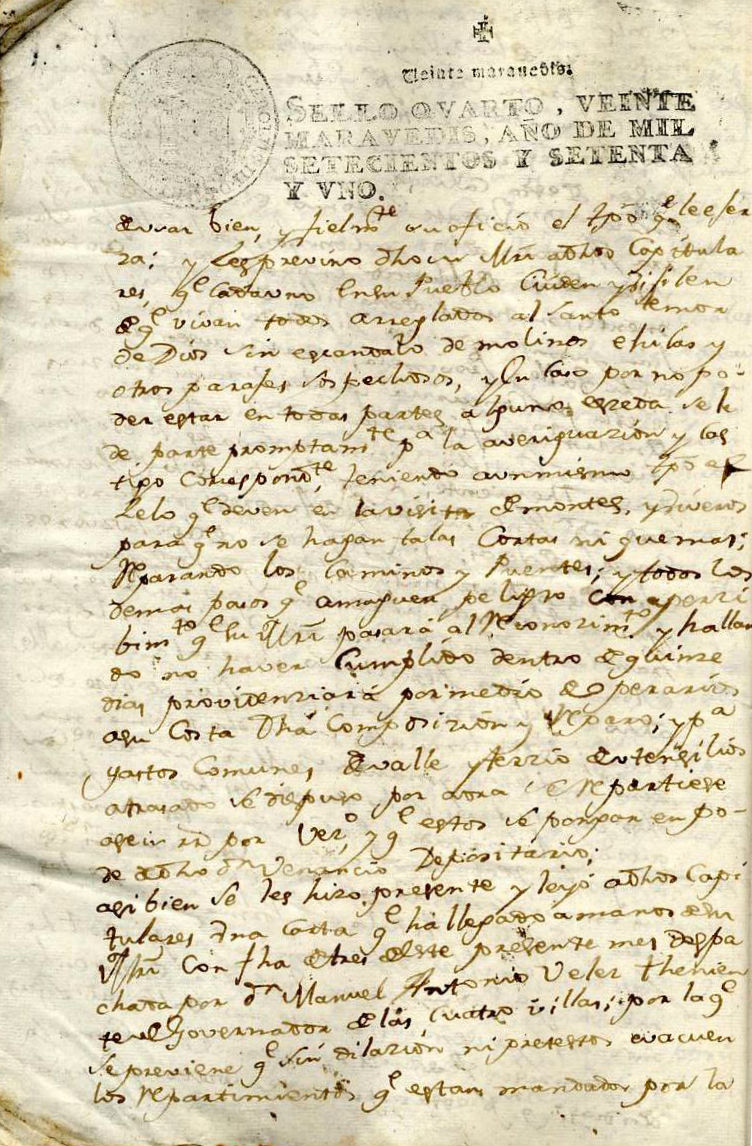 Veinte maravedis.
SELLO QVARTO, VEINTE
MARAVEDIS, AÑO DE MIL
SETECIENTOS Y SETENTA
Y VNO.
de usar bien, y fielmte su oficio el tpo qe le exer
za; y les previno dho su Mrd a dhos Capitula
res, qe cada uno en su Pueblo cuiden y vijilen
de qe vivan todos arreglados al santo temor
de Dios sin escandalo de molinos e hilas y
otros parajes sospechosos, y en caso por no po-
der estar en todas partes alguno exceda se le
de parte promptamte pa la averiguazión y cas
tigo correspondte, teniendo a un mismo tpo el
zelo qe deven en la visita de montes, y viveros
para qe no se hagan talas Cortas ni quemas;
Reparando los Caminos y Puentes; y todos los
demas pasos qe amaguen peligro con aperzi
bimto qe su Mrd pasará al Reconozimto, y hallan
do no haver Cumplido dentro de quinze
dias providenziará por medio de operarios
a su Costa dha Composizión y Reparo; y pa
gastos Comunes de valle y serrio de utensilios
atrasado se dispuso por aora se Repartiese
a seis rs por Vezo, y qe estos se pongan en po-
de a dho dn Venancio Depositario;
asi bien se les hizo presente y leyó a dhos Capi
tulares Una carta qe ha llegado a manos de su
Mrd con fha de tres de este presente mes despa
chada por dn Manuel Antonio Velez thenien
te de Governador de las Cuatro villas; por la qe
se previene qe sin dilazión ni pretestos evacuen
los Repartimientos qe estan mandados por la